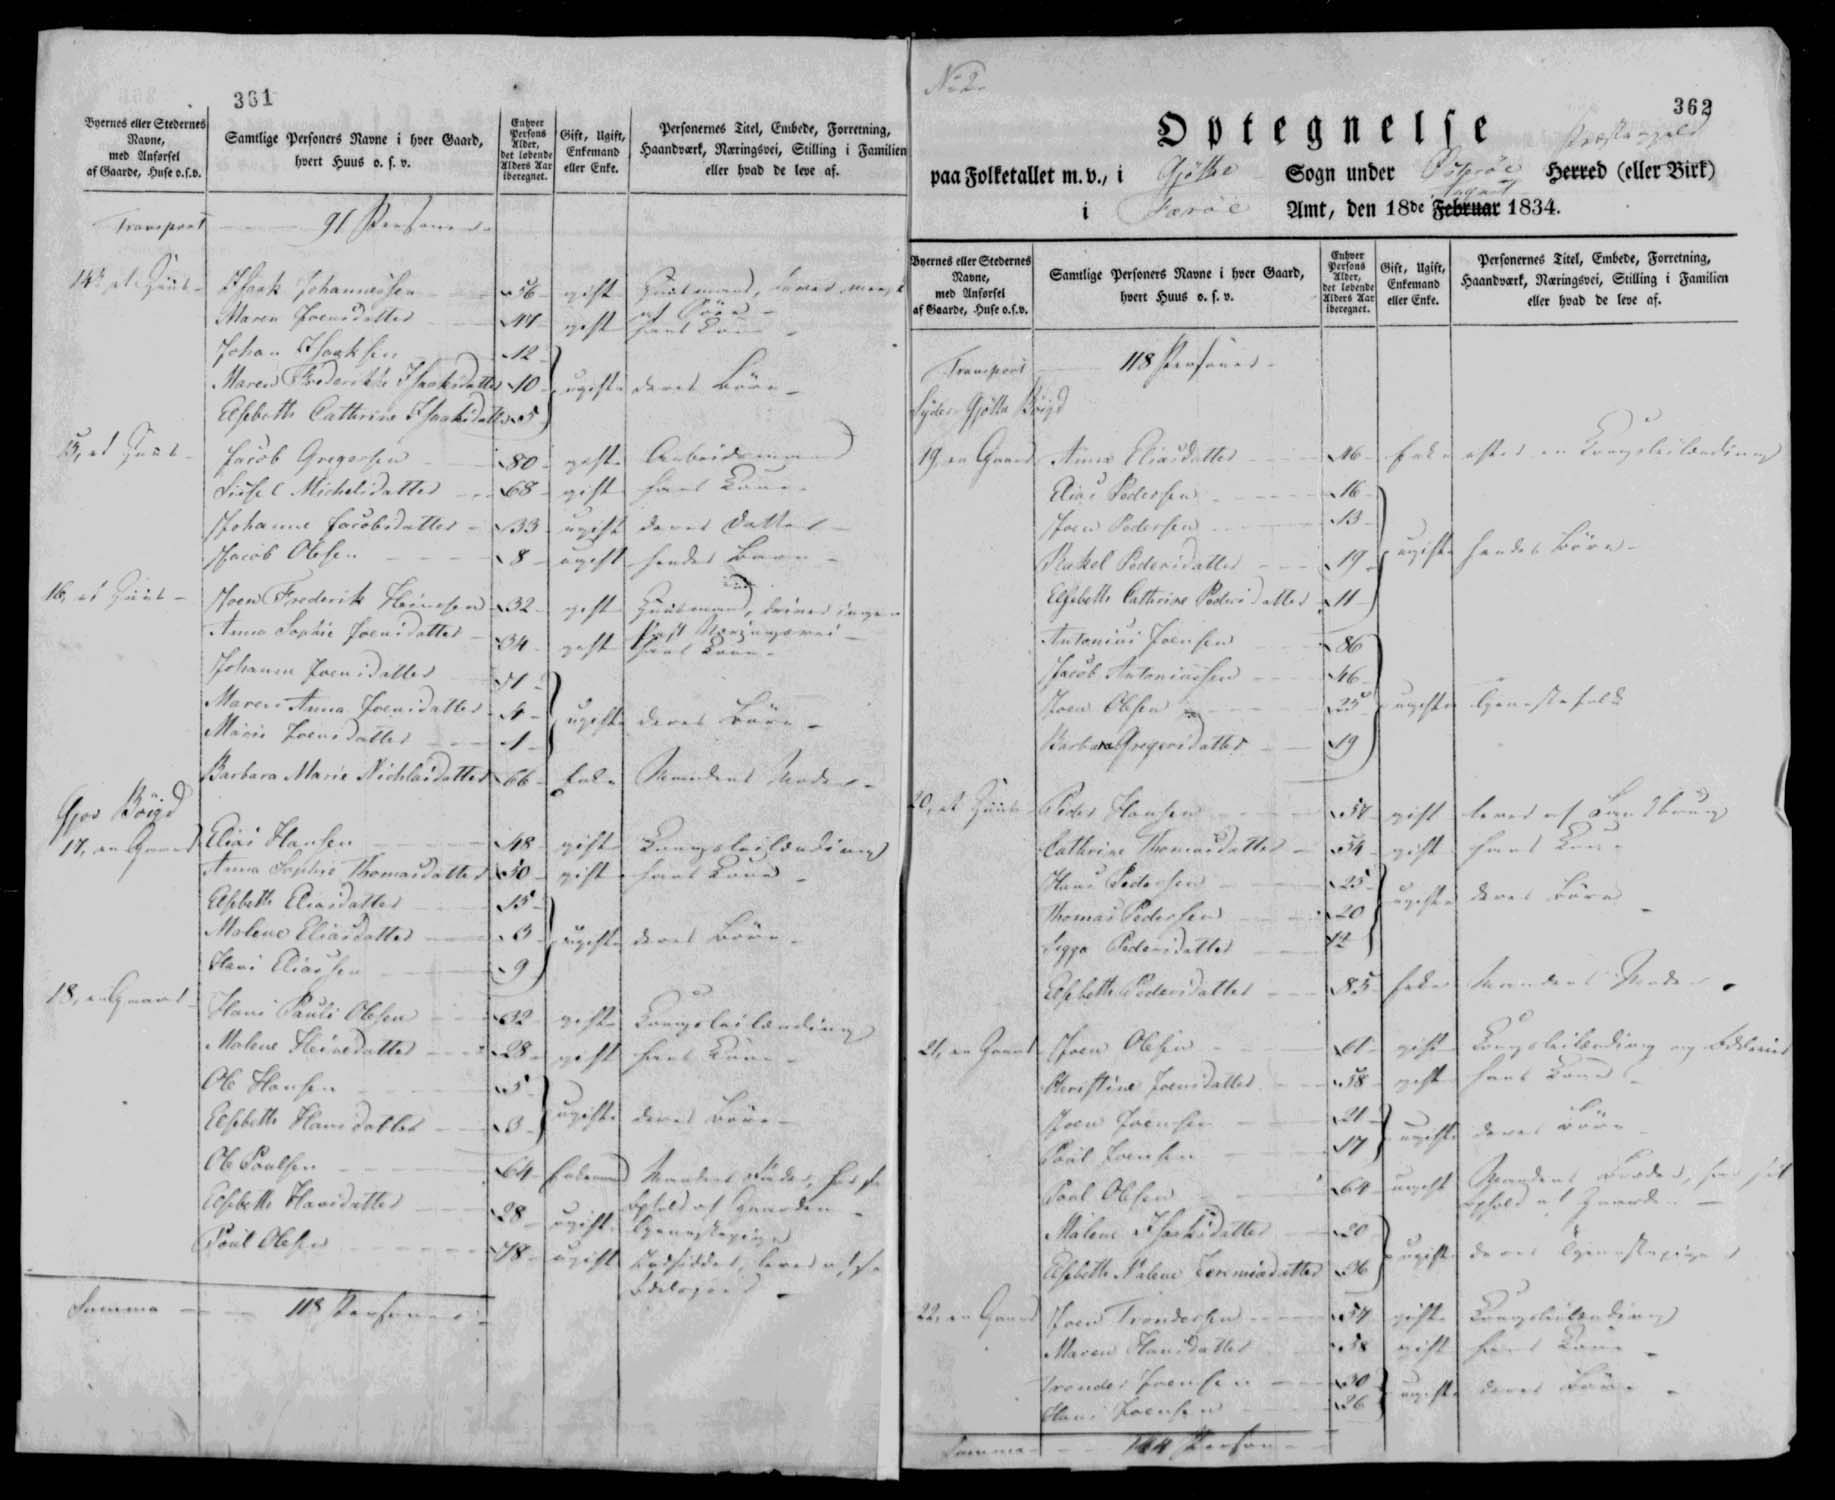 361
Byernes eller Stedernes Navne, med Anførsel af Gaarde, Huse o.s.v.
Samtlige Personers Navne i hver Gaard, hvert Huus o. s. v.
Enhver Persons Alder, det løbende Alders Aar iberegnet.
Gift, Ugift, Enkemand eller Enke.
Personernes Titel, Embede, Forretning, Haandværk, Næringsvei, Stilling i Familien eller hvad de leve af.
Transport 91 Personer
14, et Huus Isaak Johannessen 56 gift Huusmand, lever meest af Söen
Maren Joensdatter 47 gift hans Kone
Johan Isaksen 12
Maren Frederikke Isaaksdatter 10 ugifte deres Börn
Elsebeth Cathrine Isaaksdatter 5
15, et Huus Jacob Gregersen 80 gift Arbeidsmand
Sissel Michelsdatter 68 gift hans Kone
Johanne Jacobsdatter 33 ugift deres Datter
Jacob Olesen 8 ugift hendes Barn
16, et Huus Joen Frederik Heinesen 32 gift Huusmand, driver ingen vis Næringsvei
Anna Sophie Joensdatter 34 gift hans Kone
Johanna Joensdatter
Maren Anna Joensdatter 4 ugifte deres Börn
Marie Joensdatter 1
Barbara Marie Nichlasdatter 66 Enke Mandens Moder
Gjov Böigd
17, en Gaard Elias Hansen 48 gift Kongsleilænding
Anna Sophie Thomasdatter 50 gift hans Kone
Elsebeth Eliasdatter 15
Malene Eliasdatter 3 ugifte deres Börn
Hans Eliassen 9
18, en Gaard Hans Pauli Olesen 32 gift Kongsleilænding
Malene Heinedatter 28 gift hans Kone
Ole Hansen 5
Elsebeth Hansdatter 3 ugifte deres Börn
Ole Poulsen 64 Enkemand Mandens Fader, har sit Ophold af Gaarden
Elsebeth Hansdatter 28 ugift Tjenestepige
Poul Olesen 78 ugift Indsidder, lever af sin Odelsjord
Summa 118 Personer
No 2
362
Optegnelse
paa Folketallet m.v., i Gjöthe Sogn under Österöe Præstegield Herred (eller Birk)
i Færöe Amt, den 18de Februar August 1834.
Byernes eller Stedernes Navne, med Anførsel af Gaarde, Huse o.s.v.
Samtlige Personers Navne i hver Gaard, hvert Huus o. s. v.
Enhver Persons Alder, det løbende Alders Aar iberegnet.
Gift, Ugift, Enkemand eller Enke.
Personernes Titel, Embede, Forretning, Haandværk, Næringsvei, Stilling i Familien eller hvad de leve af.
Transport 118 Personer
Syder Gjöthe Böigd
19, en Gaard Anna Eliasdatter 46 Enke efter en Kongsleilænding
Elias Pedersen 16
Joen Pedersen 13
Rakel Pedersdatter 19 ugifte hendes Börn
Elsebeth Cathrine Pedersdatter 11
Antonius Joensen 86
Jacob Antoniussen 46
Joen Olesen 25 ugifte Tjenestefolk
Barbara Gregersdatter 19
20, et Huus Peder Hansen 57 gift lever af Landbrug
Cathrine Thomasdatter 54 gift hans Kone
Hans Pedersen 25
Thomas Pedersen 20 ugifte deres Börn
Sigga Pedersdatter 12
Elsebeth Pedersdatter 85 Enke Mandens Moder
21, en Gaard Joen Olesen 61 gift Kongsleilænding og
Christine Joensdatter 58 gift hans Kone
Joen Joensen 21
Poul Joensen 17 ugifte deres Börn
Poul Olesen 64 ugift Mandens Broder, har sit Ophold af Gaarden
Malene Isaksdatter 20
Elsebeth Malene Jeremiasdatter 36 ugifte deres Tjenestepiger
22, en Gaard Joen Trondersen 57 gift Kongsleilænding
Maren Hansdatter 58 gift hans Kone
Tronder Joensen 30
Hans Joensen 26 ugifte deres Börn
Summa 144 Personer